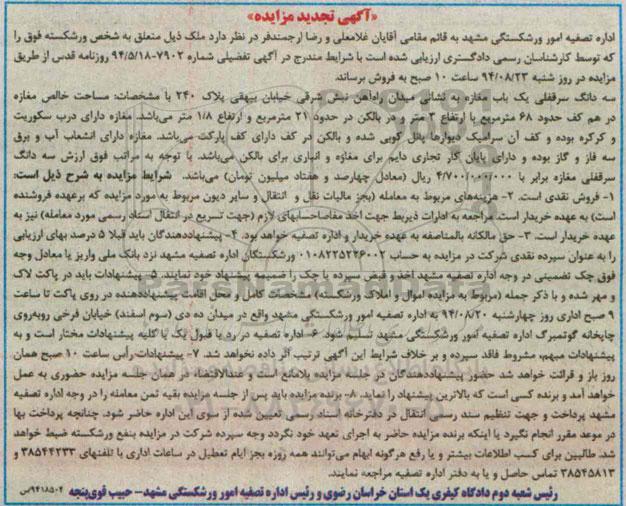 «آگهی تجدید مزایده»
اداره تصفیه امور ورشکستگی مشهد به قائم مقامی آقایان غلامعلی و رضا ارجمندفر در نظر دارد ملک ذیل متعلق به شخص ورشکسته فوق را
که توسط کارشناسان رسمی دادگستری ارزیابی شده است با شرایط مندرج در آگهی تفضیلی شماره ۷۹۰۲-۹۴/۵/۱۸ روزنامه قدس از طریق
مزایده در روز شنبه ۹۴/۰۸/۲۳ ساعت ۱۰ صبح به فروش برساند.
سه دانگ سرقفلی یک باب مغازه به نشانی میدان راه‌آهن نبش شرقی خیابان بیهقی پلاک ۲۴۰ با مشخصات: مساحت خالص مغازه
در هم کف حدود ۶۸ مترمربع با ارتفاع ۳ متر و در بالکن در حدود ۲۱ مترمربع و ارتفاع ۱/۸ متر می‌باشد. مغازه دارای درب سکوریت
و کرکره بوده و کف آن سرامیک دیوارها پنل کوبی شده و بالکن در کف دارای کف پارکت می‌باشد. مغازه دارای انشعاب آب و برق
سه فاز و گاز بوده و دارای پایان کار تجاری دایم برای مغازه و انباری برای بالکن می‌باشد. با توجه به مراتب فوق ارزش سه دانگ
سرقفلی مغازه برابر با ۴/۷۰۰/۰۰۰/۰۰۰ ریال (معادل چهارصد و هفتاد میلیون تومان) می‌باشد. شرایط مزایده به شرح ذیل است:
۱- فروش نقدی است. ۲- هزینه‌های مربوط به معامله (بجز مالیات نقل و انتقال و سایر دیون مربوط به مورد مزایده که برعهده فروشنده
است) به عهده خریدار است. مراجعه به ادارات ذیربط جهت اخذ مفاصاحسابهای لازم (جهت تسریع در انتقال اسناد رسمی مورد معامله) نیز به
عهده خریدار است. ۳- حق مالکانه بالمناصفه به عهده خریدار و اداره تصفیه خواهد بود. ۴- پیشنهاددهندگان باید قبلا ۵ درصد بهای ارزیابی
را به عنوان سپرده نقدی شرکت در مزایده به حساب ۰۱۰۸۲۲۵۲۳۶۰۰۲ ورشکستگان اداره تصفیه مشهد نزد بانک ملی واریز یا معادل وجه
فوق چک تضمینی در وجه اداره تصفیه مشهد اخذ و قبض سپرده یا چک را ضمیمه پیشنهاد خود نمایند. ۵- پیشنهادات باید در پاکت لاک
و مهر شده و با ذکر جمله (مربوط به مزایده اموال و املاک ورشکسته) مشخصات کامل و محل اقامت پیشنهاددهنده در روی پاکت تا ساعت
۹ صبح اداری روز چهارشنبه ۹۴/۰۸/۲۰ به اداره تصفیه امور ورشکستگی مشهد واقع در میدان ده دی (سوم اسفند) خیابان فرخی روبه‌روی
چاپخانه گوتمبرگ اداره تصفیه امور ورشکستگی مشهد تسلیم شود. ۶- اداره تصفیه در رد یا قبول یک یا کلیه پیشنهادات مختار است و به
پیشنهادات مبهم، مشروط فاقد سپرده و بر خلاف شرایط این آگهی ترتیب اثر داده نخواهد شد. ۷- پیشنهادات رأس ساعت ۱۰ صبح همان
روز باز و قرائت خواهد شد حضور پیشنهاددهندگان در جلسه مزایده بلامانع است و عندالاقتضاء در همان جلسه مزایده حضوری به عمل
خواهد آمد و برنده کسی است که بالاترین پیشنهاد را نماید. ۸- برنده مزایده باید پس از جلسه مزایده بقیه ثمن معامله را در وجه اداره تصفیه
مشهد پرداخت و جهت تنظیم سند رسمی انتقال در دفترخانه اسناد رسمی تعیین شده از سوی این اداره حاضر شود. چنانچه پرداخت بها
در موعد مقرر انجام نگیرد یا اینکه برنده مزایده حاضر به اجرای تعهد خود نگردد وجه سپرده شرکت در مزایده بنفع ورشکسته ضبط خواهد
شد. طالبین برای کسب اطلاعات بیشتر و یا رفع هرگونه ابهام می‌توانند همه روزه بجز ایام تعطیل در ساعات اداری با تلفنهای ۳۸۵۴۴۲۳۳ و
۳۸۵۴۵۸۱۳ تماس حاصل و یا به دفتر اداره تصفیه مراجعه نمایند.
رئیس شعبه دوم دادگاه کیفری یک استان خراسان رضوی و رئیس اداره تصفیه امور ورشکستگی مشهد- حبیب قوی‌پنجه
۹۴۱۸۵۰۴/س
ParsNamadData